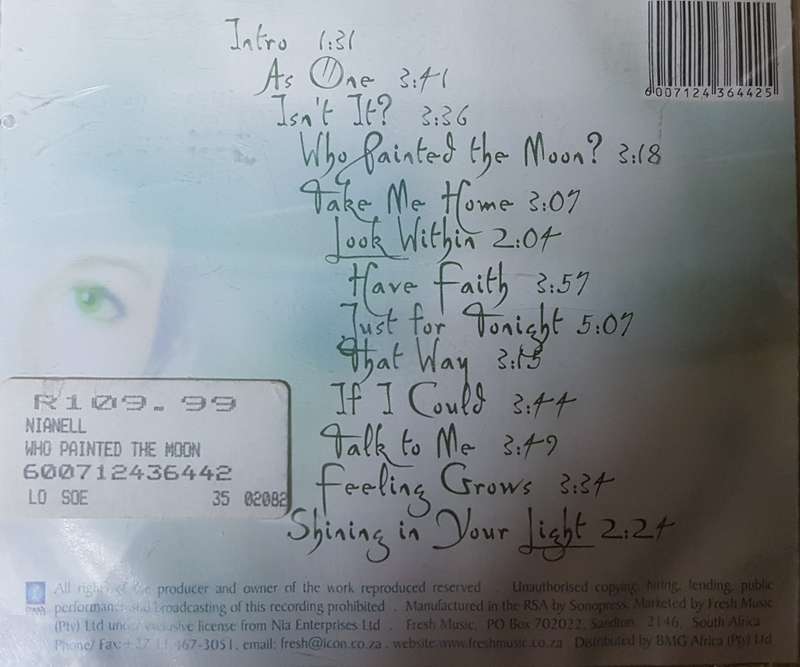 Intro 1:31
As One 3:41
Isn't It? 3:36
Who Painted the Moon? 3:18
Take Me Home 3:07
Look Within 2:04
Have Faith 3:57
Just for Tonight 5:07
That Way 3:15
If I Could 3:44
Talk to Me 3:49
Feeling Grows 3:34
Shining in Your Light 2:24
6007124364425
R109.99
NIANELL
WHO PAINTED THE MOON
600712436442
LO SOE 35 02082
All rights of the producer and owner of the work reproduced reserved . Unauthorised copying, hiring, lending, public
performance and broadcasting of this recording prohibited . Manufactured in the RSA by Sonopress. Marketed by Fresh Music
(Pty) Ltd under exclusive license from Nia Enterprises Ltd . Fresh Music, PO Box 702022, Sandton, 2146, South Africa
Phone/ Fax:+27 11 467-3051, email: fresh@icon.co.za . website:www.freshmusic.co.za Distributed by BMG Africa (Pty) Ltd